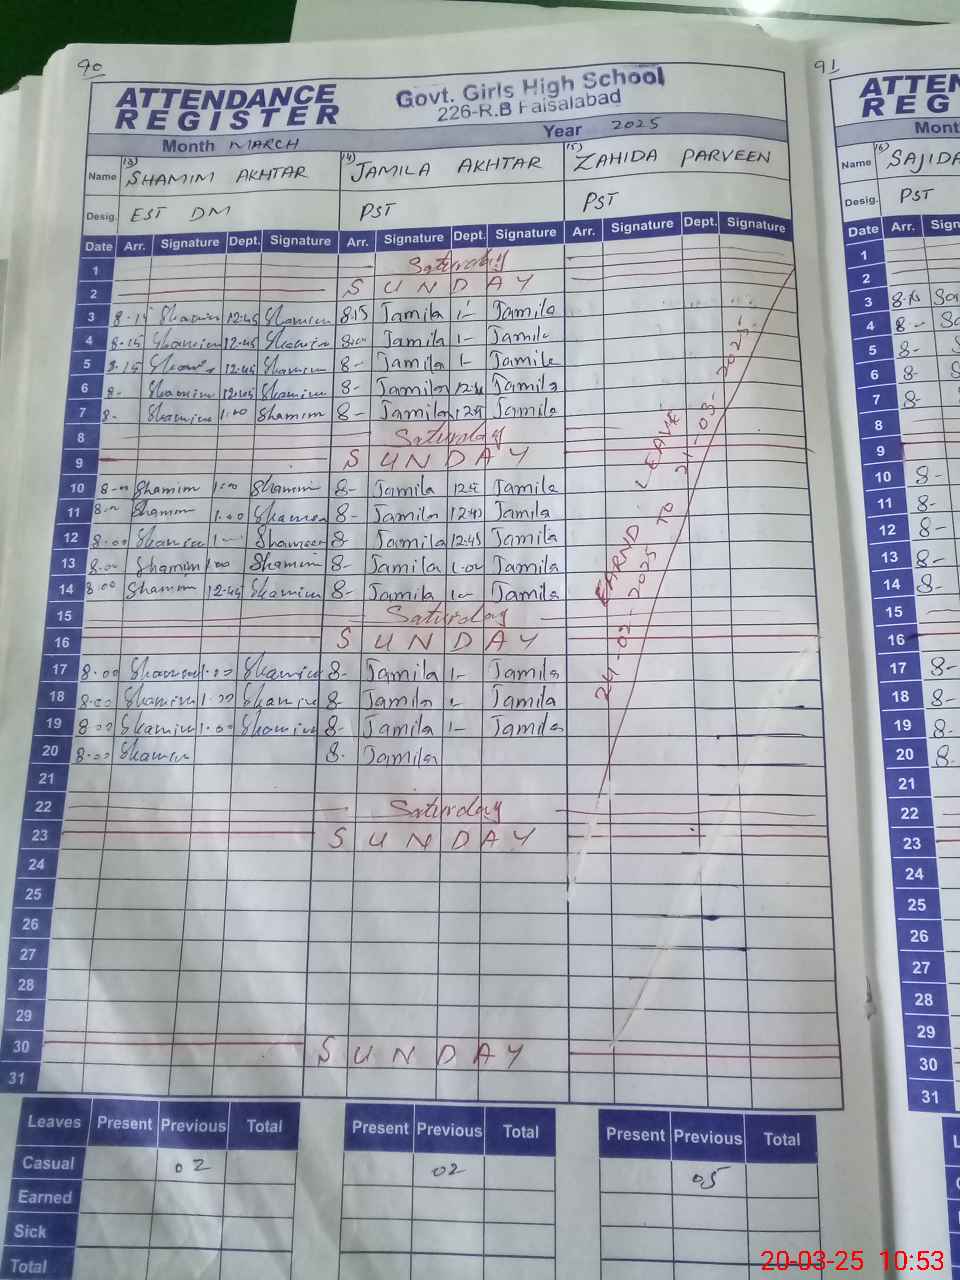 90
ATTENDANCE REGISTER
Govt. Girls High School
226-R.B Faisalabad
Month MARCH Year 2025
Name 13) SHAMIM AKHTAR 14) JAMILA AKHTAR 15) ZAHIDA PARVEEN
Desig. EST DM PST PST
Date Arr. Signature Dept. Signature Arr. Signature Dept. Signature Arr. Signature Dept. Signature
1 Saturday
2 SUNDAY
3 8-15 Shamim 12-45 Shamim 8.15 Jamila 1- Jamila
4 8-15 Shamim 12-45 Shamim Jamila 1- Jamila
5 8-15 12-45 Shamim 8- Jamila 1- Jamila
6 8- Shamim 12-45 Shamim 8- Jamila Jamila
7 8- Shamim 1.00 Shamim 8- Jamila Jamila
8 Saturday
9 SUNDAY
10 8-00 Shamim 1-00 Shamim 8- Jamila Jamila
11 Shamim 1.00 Shamim 8- Jamila 12-45 Jamila
12 8-00 Shamim 1- Shamim 8- Jamila 12.45 Jamila
13 8-00 Shamim 1.00 Shamim 8- Jamila 1.00 Jamila
14 8.00 Shamim 12-45 Shamim 8- Jamila 1- Jamila
15 Saturday
16 SUNDAY
17 8.00 Shamim 1.00 Shamim 8- Jamila 1- Jamila
18 8.00 Shamim 1.00 Shamim 8- Jamila 1- Jamila
19 8.00 Shamim 1.00 Shamim 8- Jamila 1- Jamila
20 8.00 Shamim 8. Jamila
21
22 Saturday
23 SUNDAY
24
25
26
27
28
29
30 SUNDAY
31
EARND LEAVE
24-02-2025 TO 21-03-2025
Leaves Present Previous Total Present Previous Total Present Previous Total
Casual 02 02 05
Earned
Sick
Total
91
ATTEN
REG
Mont
Name 16) SAJIDA
Desig. PST
Date Arr. Sign
1
2
3 8.15 Sa
4 8- Sa
5 8-
6 8-
7 8-
8
9
10 8-
11 8-
12 8-
13 8-
14 8-
15
16
17 8-
18 8-
19 8-
20 8-
21
22
23
24
25
26
27
28
29
30
31
20-03-25 10:53